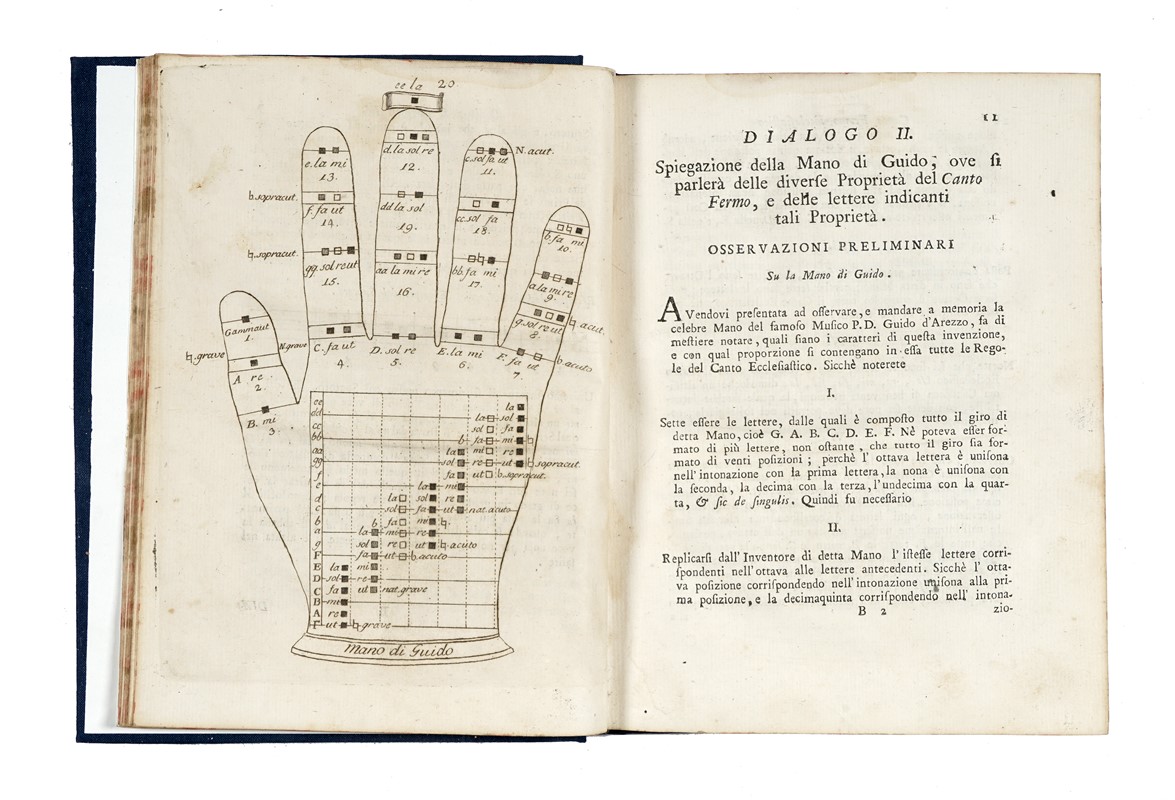 ee la 20
e. la mi
13.
b. sopracut.
f. fa ut
14.
♮. sopracut.
gg. sol re ut
15.
d. la sol re
12.
dd la sol
19.
aa la mi re
16.
N. acut.
c. sol fa ut
11.
cc. sol fa
18.
bb. fa mi
17.
b. fa mi
10.
a. la mi re
9.
g. sol re ut
8.
♮ acut.
b. acuto
Gammaut
1.
♮. grave
N. grave
A re
2.
B. mi
3.
C. fa ut
4.
D. sol re
5.
E. la mi
6.
F. fa ut
7.
ee la
dd la sol
cc sol fa
bb b fa mi ♮
aa la mi re
gg sol re ut ♮ sopracut.
f fa ut b. sopracut.
e la mi
d la sol re
c sol fa ut nat. acuto
b b fa mi ♮
a la mi re
g sol re ut ♮ acuto
F fa ut b. acuto
E la mi
D sol re
C fa ut nat. grave
B mi
A re
Γ ut ♮ grave
Mano di Guido
11
DIALOGO II.
Spiegazione della Mano di Guido, ove ſi
parlerà delle diverſe Proprietà del Canto
Fermo, e delle lettere indicanti
tali Proprietà.
OSSERVAZIONI PRELIMINARI
Su la Mano di Guido.
AVendovi preſentata ad oſſervare, e mandare a memoria la
celebre Mano del famoſo Muſico P.D. Guido d'Arezzo, fa di
meſtiere notare, quali ſiano i caratteri di queſta invenzione,
e con qual proporzione ſi contengano in eſſa tutte le Rego-
le del Canto Eccleſiaſtico. Sicchè noterete
I.
Sette eſſere le lettere, dalle quali è compoſto tutto il giro di
detta Mano, cioè G. A. B. C. D. E. F. Nè poteva eſſer for-
mato di più lettere, non oſtante, che tutto il giro ſia for-
mato di venti poſizioni; perchè l'ottava lettera è uniſona
nell'intonazione con la prima lettera, la nona è uniſona con
la ſeconda, la decima con la terza, l'undecima con la quar-
ta, & ſic de ſingulis. Quindi fu neceſſario
II.
Replicarſi dall'Inventore di detta Mano l'iſteſſe lettere corri-
ſpondenti nell'ottava alle lettere antecedenti. Sicchè l'otta-
va poſizione corriſpondendo nell'intonazione uniſona alla pri-
ma poſizione, e la decimaquinta corriſpondendo nell'intona-
B 2 zio-